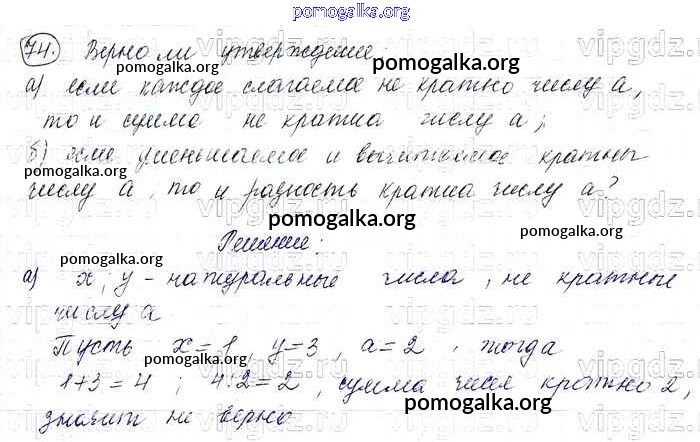 pomogalka.org
74. Верно ли утверждение:
pomogalka.org pomogalka.org
а) если каждое слагаемое не кратно числу а,
то и сумма не кратна числу а;
pomogalka.org
б) если уменьшаемое и вычитаемое кратны
числу а, то и разность кратна числу а?
pomogalka.org
Решение:
pomogalka.org pomogalka.org
а) x, y - натуральные числа, не кратные
числу а
pomogalka.org
Пусть x=1, y=3, a=2, тогда
pomogalka.org
1+3=4; 4:2=2, сумма чисел кратно 2,
pomogalka.org
значит не верно